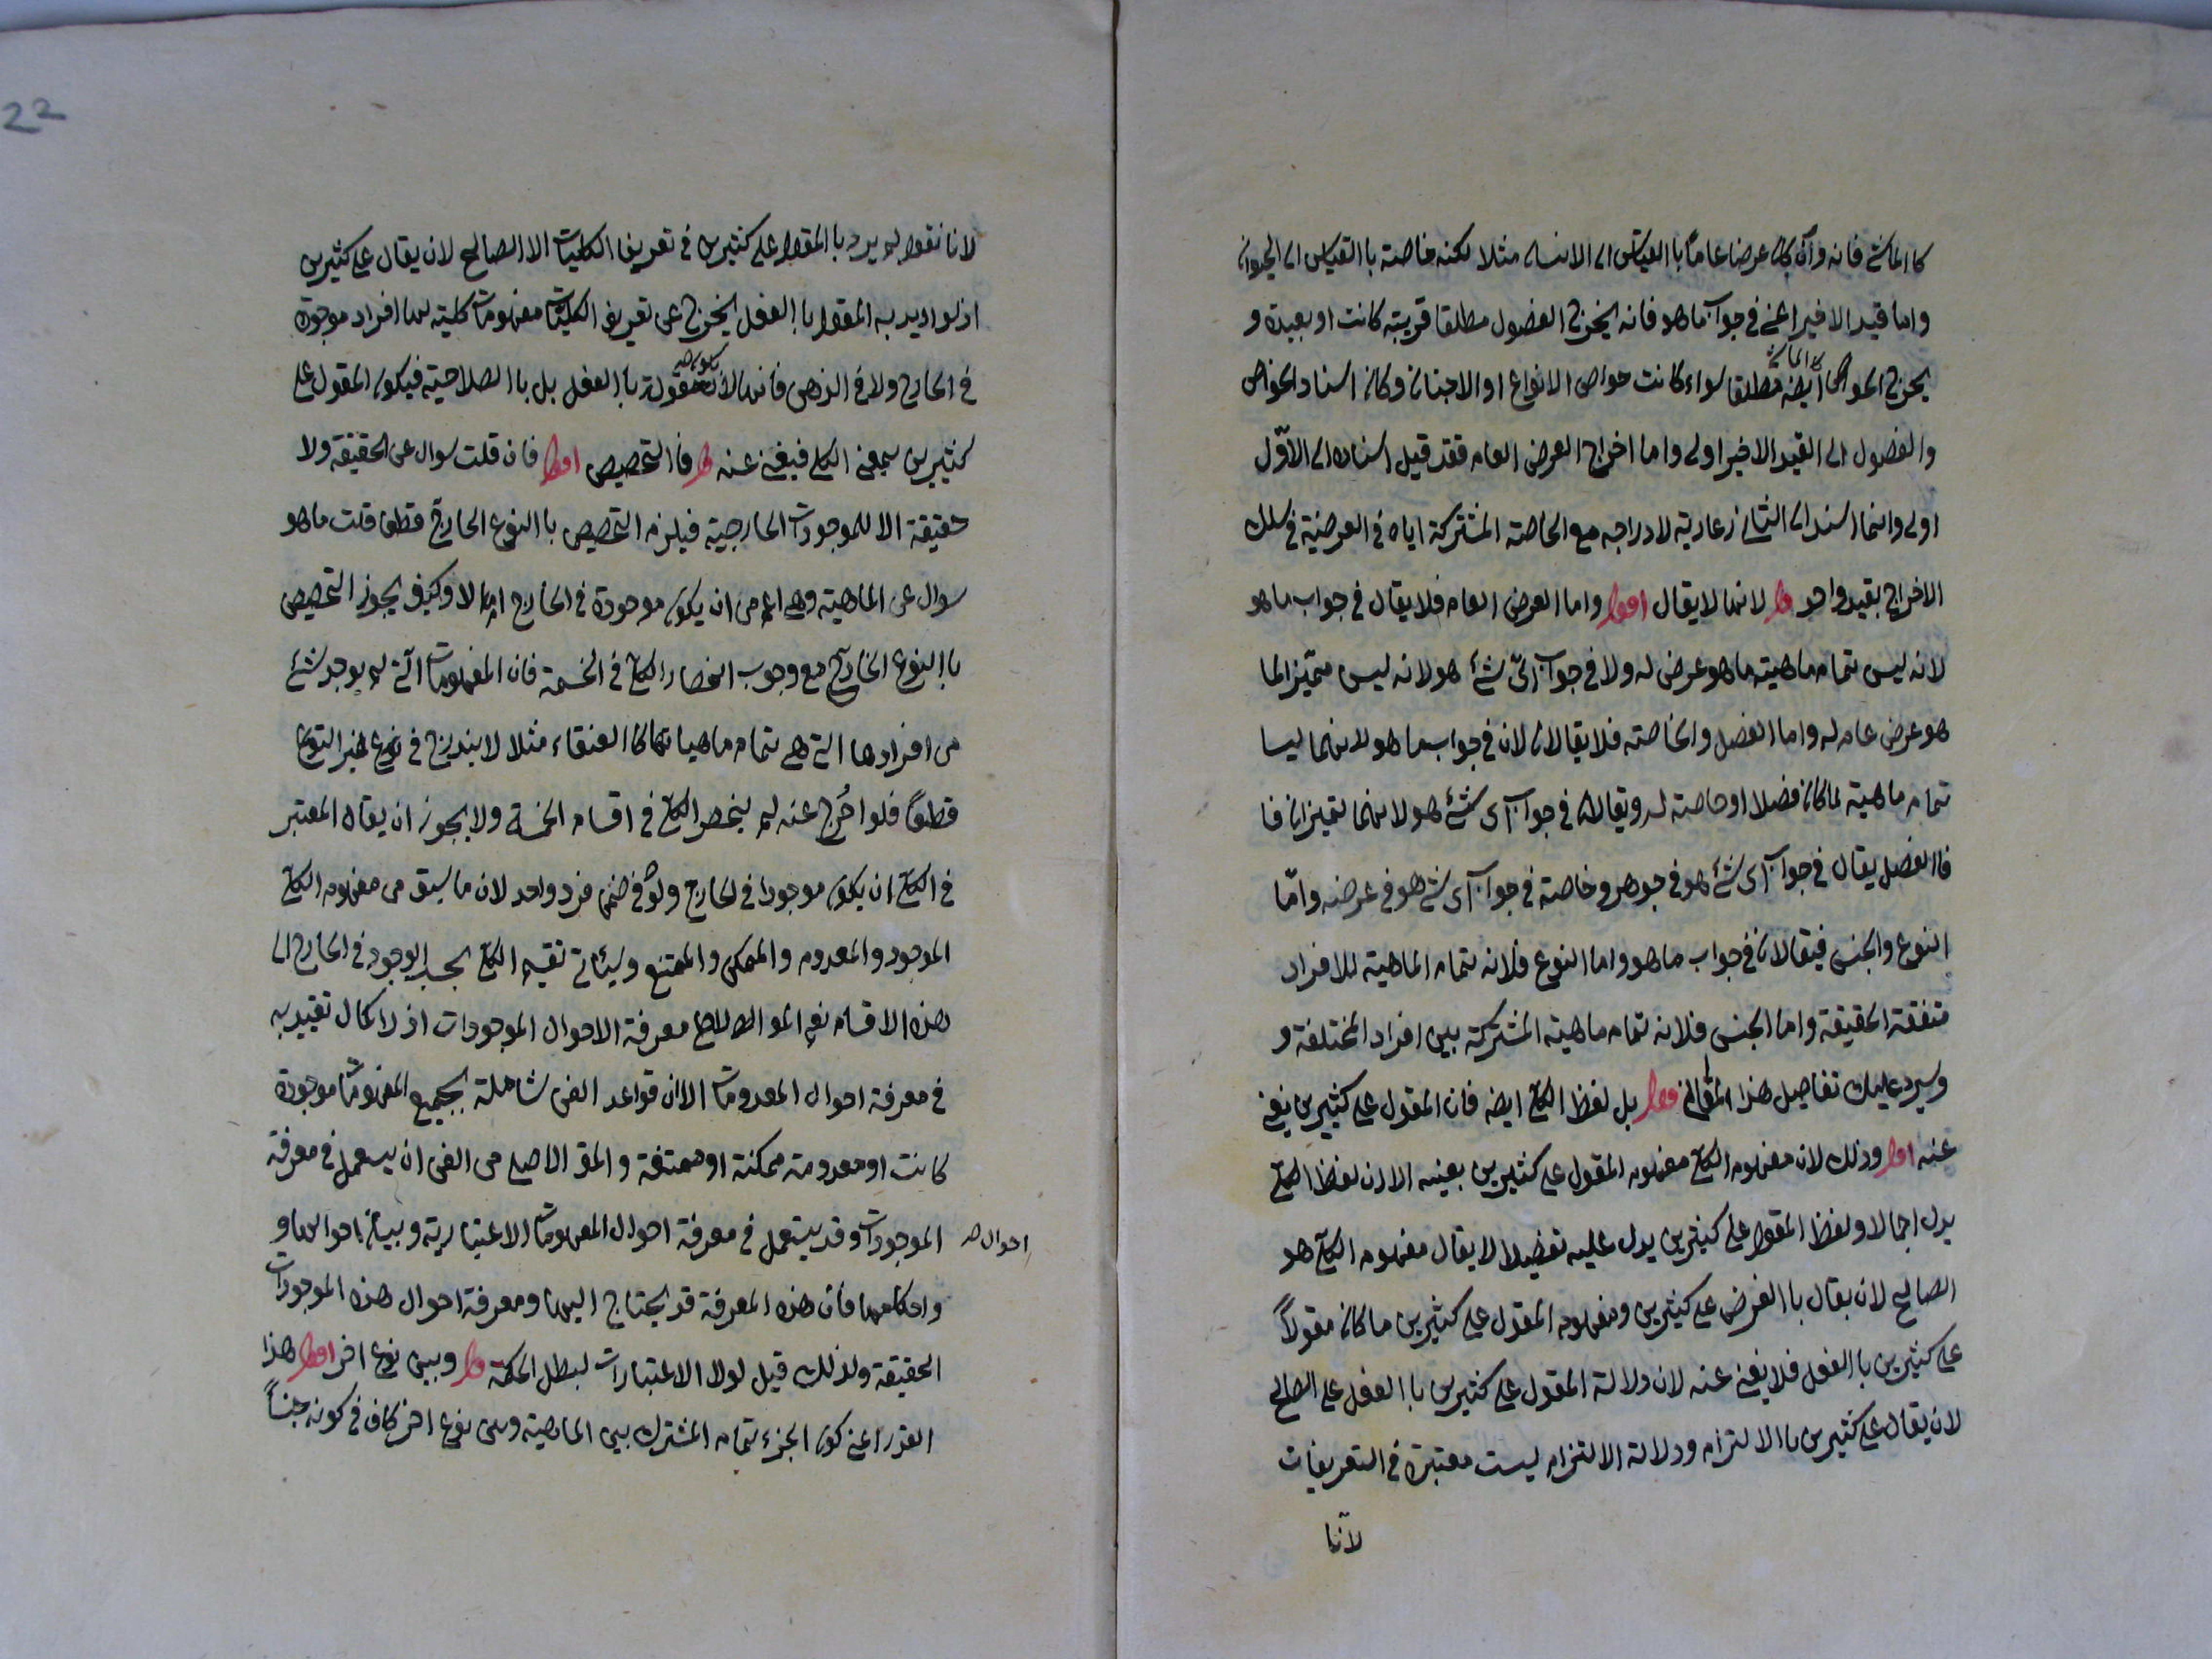 كا الماشي فانه وان كان عرضا عاما با القياس الى الانسان مثلا لكنه خاصة با القياس الى الحيوان
واما قيد الاخير اعني في جواب ما هو فانه يخرج الفصول مطلقا قريبة كانت او بعيدة و
يخرج الخواص ايضه مطلقا سواء كانت خواص الانواع او الاجناس وكان اسناد الخواص
والفصول الى القيد الاخير اولى واما اخراج العرض العام فقد قيل اسناده الى الاوّل
اولى وانما اسند الى الثاني رعاية لادراجه مع الخاصة المشتركة اياه في العرضية في سلك
الاخراج بقيد واحد لانها لا يقال واما العرض العام فلا يقال في جواب ما هو
لانه ليس تمام ماهية ما هو عرض له ولا في جواب اىّ شئ هو لانه ليس مميّزا لما
هو عرض عام له واما الفصل والخاصة فلا يقالان في جواب ما هو لانهما ليسا
تمام ماهية لما كان فصلا او خاصة له ويقالان في جواب اى شئ هو لانهما تميزان فا
فا الفصل يقال في جواب اى شئ هو في جوهره وخاصة في جواب اى شئ هو في عرضه وامّا
النوع والجنس فيقالان في جواب ما هو واما النوع فلانه تمام الماهية للافراد
متفقة الحقيقة واما الجنس فلانه تمام ماهية المشتركة بين افراد المختلفة و
وسيرد عليك تفاصيل هذا بل لفظ الكلي ايضه فان المقول على كثيرين يغني
عنه وذلك لان مفهوم الكلي مفهوم المقول على كثيرين بعينه الا ان لفظ الكلي
يدل اجمالا ولفظ المقول على كثيرين يدل عليه تفصيلا لا يقال مفهوم الكلي هو
الصالح لان يقال با الفرض على كثيرين ومفهوم المقول على كثيرين ما كان مقولاً
على كثيرين با الفعل فلا يغني عنه لان دلالة المقول على كثيرين با الفعل على الصالح
لان يقال على كثيرين با الالتزام ودلالة الالتزام ليست معتبرة في التعريفات
لانا
22
لانا نقول لم يرد با المقول على كثيرين في تعريف الكليات الا الصالح لان يقال على كثيرين
اذ لو اريد به المقول با الفعل لخرج عن تعريف الكليات مفهومات كلية لها افراد موجودة
في الخارج ولا في الذهن فانها لا تكون مقولة با الفعل بل با الصلاحية فيكون المقول على
كثيرين بمعنى الكلي فيغني عنه فا التخصيص فان قلت سوال عن الحقيقة ولا
حقيقة الا للموجودات الخارجية فيلزم التخصيص با النوع الخارجي قطعا قلت ما هو
سوال عن الماهية وهي اعم من ان يكون موجودة في الخارج ام لا وكيف يجوز التخصيص
با النوع الخارجي مع وجوب انحصار الكلي في الخمسة فان المفهومات التي لم يوجد شئ
من افرادها التي هي تمام ماهياتها كا العنقاء مثلا لا يندرج في غير النوع
قطعاً فلو اخرج عنه لم ينحصر الكلي في اقسام الخمسة ولا يجوز ان يقال المعتبر
في الكلي ان يكون موجودا في الخارج ولو في ضمن فرد واحد لان ما سبق من مفهوم الكلي
الموجود والمعدوم والممكن والممتنع وسيئاتي تقسيم الكلي بحسب الوجود في الخارج الى
هذه الاقسام نعم معرفة الاحوال الموجودات اذ لا كمال تقيد به
في معرفة احوال المعدومات الا ان قواعد الفن شاملة لجميع المفهومات موجودة
كانت او معدومة ممكنة او ممتنعة والمق الاصلى من الفن ان يستعمل في معرفة
احوال صح
الموجودات وقد يستعمل في معرفة احوال المفهومات الاعتبارية وبيان احوالها و
واحكامها فان هذه المعرفة قد يحتاج اليها ومعرفة احوال هذه الموجودات
الحقيقة ولذلك قيل لولا الاعتبارات لبطل الحكمة وبين نوع اخر هذا
القدر اعني كون الجزء تمام المشترك بين الماهية وبين نوع اخر كاف في كونه جنساً